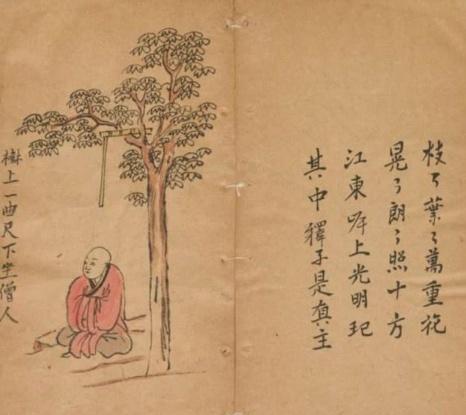 枝〻葉〻萬重
晃〻朗〻照十方
江東岸上光明
其中釋子是真主
樹上一曲尺下坐僧人